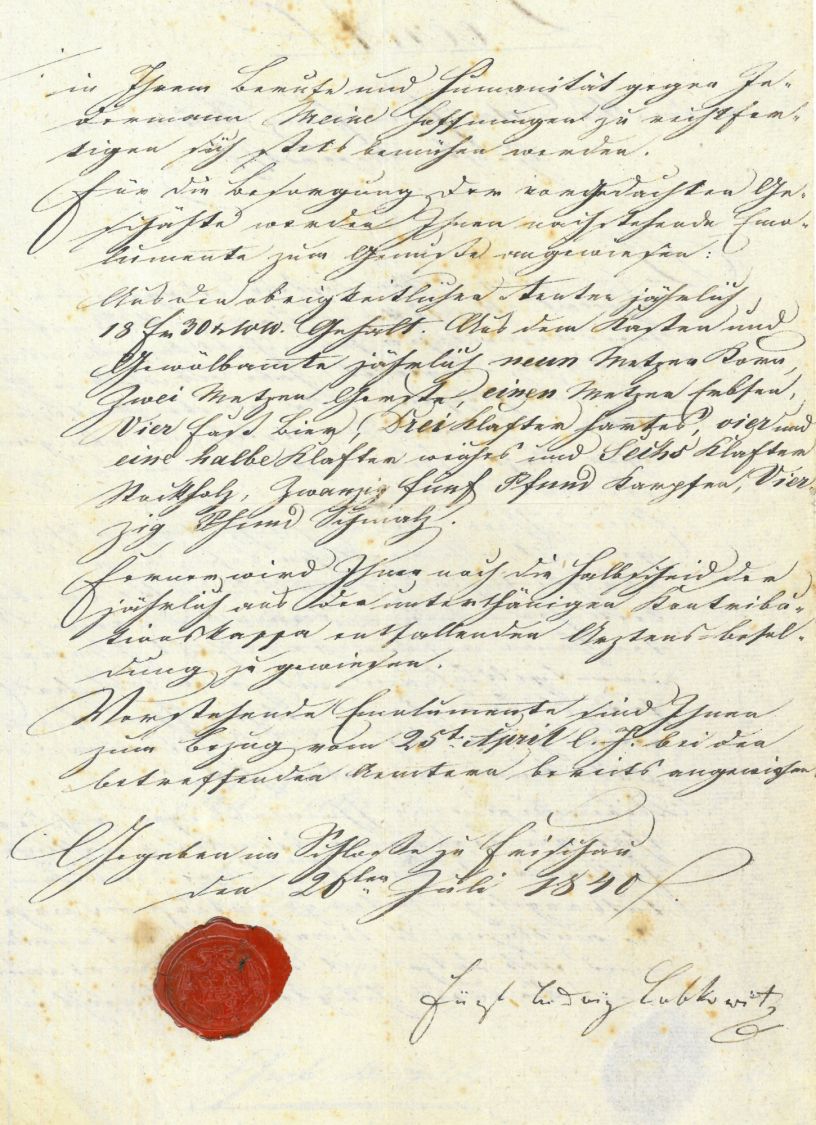 in Ihrem Berufe und Humanität gegen Je-
dermann Meine Hoffnungen zu rechtfer-
tigen sich stets bemühen werden.
Für die Besorgung der vorgedachten Ge-
schäfte werden Ihnen nachstehende Emo-
lumente zum Genuße angewiesen:
Aus den obrigkeitlichen Renten jährlich
18 fr 30 x ww. Gehalt. Aus dem Kasten und
Gewölbamte jährlich neun Metzen Korn,
Zwei Metzen Gerste, einen Metzen Erbsen,
Vier Faß Bier, Drei Klafter hartes, vier und
eine halbe Klafter weiches und Sechs Klafter
Stockholz, Zwanzig fünf Pfund Karpfen, Vier-
zig Pfund Schmalz.
Ferner wird Ihnen noch die Halbscheid der
jährlich aus der unterthänigen Kontribu-
tionskassa entfallenden Arztens-besol-
dung zugewiesen.
Vorstehende Emolumente sind Ihnen
zum Bezug vom 25t. April l. J. bei den
betreffenden Aemtern bereits angewiesen.
Gegeben im Schloße zu Frischau
den 26ten Juli 1840
Fürst Ludwig Lobkowitz